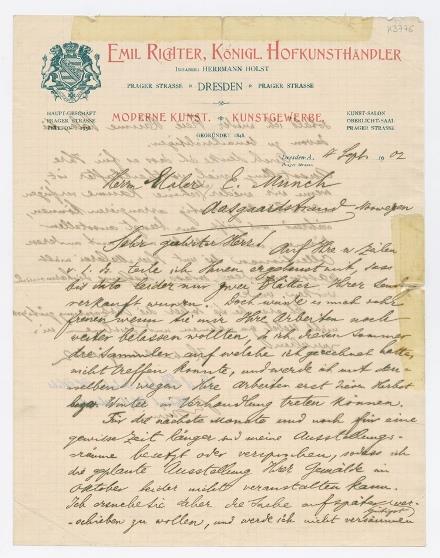 K3776
EMIL RICHTER, KÖNIGL. HOFKUNSTHÄNDLER
INHABER: HERRMANN HOLST
PRAGER STRASSE * DRESDEN * PRAGER STRASSE
HAUPT-GESCHÄFT
PRAGER STRASSE
MODERNE KUNST. KUNSTGEWERBE.
GEGRÜNDET 1848.
KUNST-SALON
OBERLICHT-SAAL
PRAGER STRASSE
Dresden-A., 4 Sept. 1902
Prager Strasse
Herrn Maler E. Munch
Aasgaardstrand Norwegen
Sehr geehrter Herr! Auf Ihre w. Zeilen
v. 1. ds. teile ich Ihnen ergebenst mit, dass
bis dato leider nur zwei Blätter Ihrer Sendung
verkauft wurden. Doch würde es mich sehr
freuen wenn Sie mir Ihre Arbeiten noch
weiter belassen wollten, da ich diesen Sommer
die Sammler auf welche ich gerechnet hatte,
nicht treffen konnte, und werde ich mit den-
selben wegen Ihre Arbeiten erst im Herbst
bezw. Winter in Verhandlung treten können.
Für die nächste Monate und noch für eine
gewisse Zeit länger sind meine Ausstellungs-
räume besetzt oder versprochen, sodass ich
die geplante Ausstellung Ihrer Gemälde im
Oktober leider nicht veranstalten kann.
Ich ersuche Sie daher die Sache auf später ver-
schieben zu wollen, und werde ich nicht versäumen